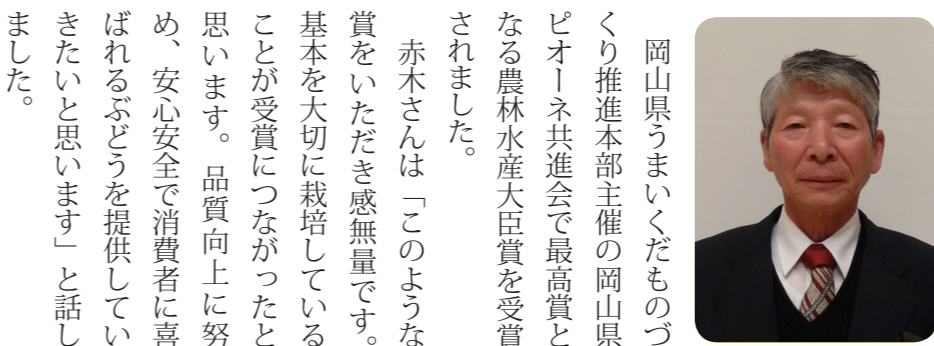 岡山県うまいくだものづ
くり推進本部主催の岡山県
ピオーネ共進会で最高賞と
なる農林水産大臣賞を受賞
されました。
赤木さんは「このような
賞をいただき感無量です。
基本を大切に栽培している
ことが受賞につながったと
思います。品質向上に努
め、安心安全で消費者に喜
ばれるぶどうを提供してい
きたいと思います」と話し
ました。